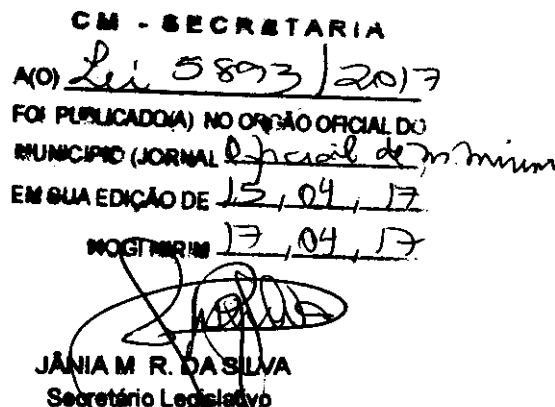 CM - SECRETARIA
A(O) Lei 5893/2017
FOI PUBLICADO(A) NO ORGÃO OFICIAL DO
MUNICIPIO (JORNAL Oficial de M Mirim
EM SUA EDIÇÃO DE 15, 04, 17
MOGI MIRIM 17, 04, 17
JÂNIA M R. DA SILVA
Secretário Legislativo